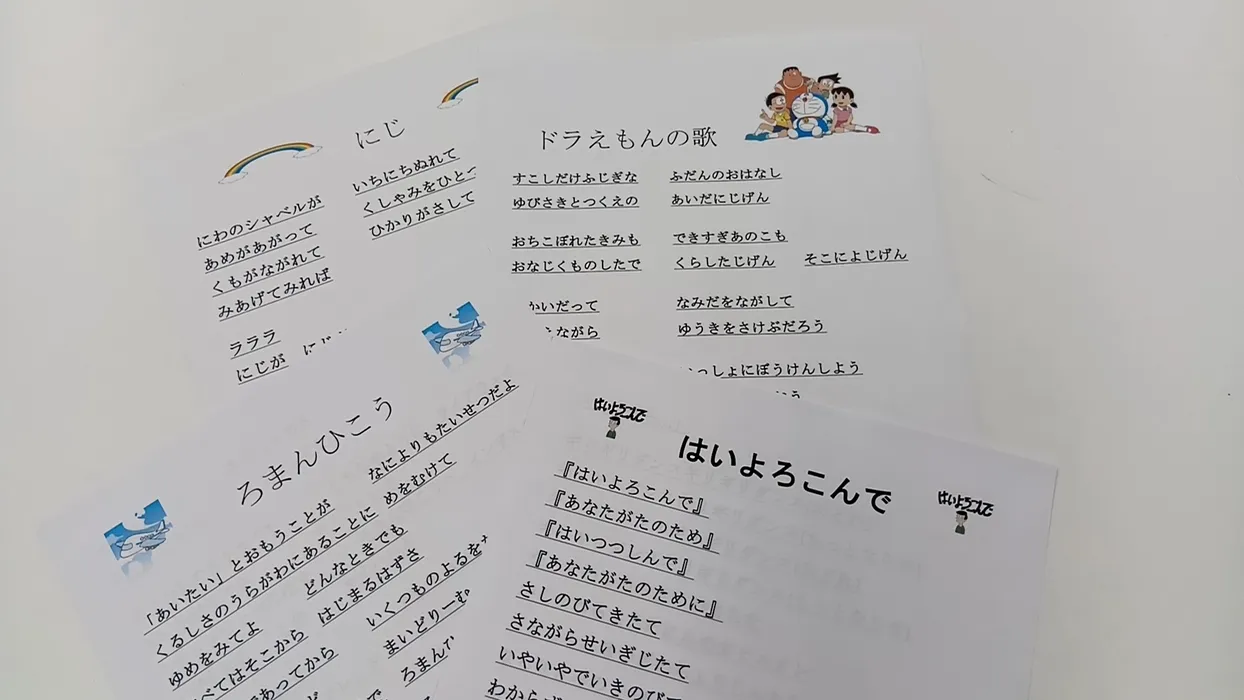 にじ
にわのシャベルが いちにちぬれて
あめがあがって くしゃみをひと
くもがながれて ひかりがさして
みあげてみれば
ラララ
にじが にじ
ドラえもんの歌
すこしだけふじぎな ふだんのおはなし
ゆびさきとつくえの あいだにじげん
おちこぼれたきみも できすぎあのこも
おなじくものしたで くらしたじげん そこによじげん
いだって なみだをながして
ながら ゆうきをさけぶだろう
っしょにぼうけんしよう
ろまんひこう
「あいたい」とおもうことが なによりもたいせつだよ
くるしさのうらがわにあることに めをむけて
ゆめをみてよ どんなときでも
べてはそこから はじまるはずさ
あってから いくつものよるを
まいどりーむ
ろまん
はいよろこんで
はいよろこんで
はいよろこんで
『はいよろこんで』
『あなたがたのため』
『はいつつしんで』
『あなたがたのために』
さしのびてきたて
さながらせいぎじたて
いやいやでいきのびて
わから